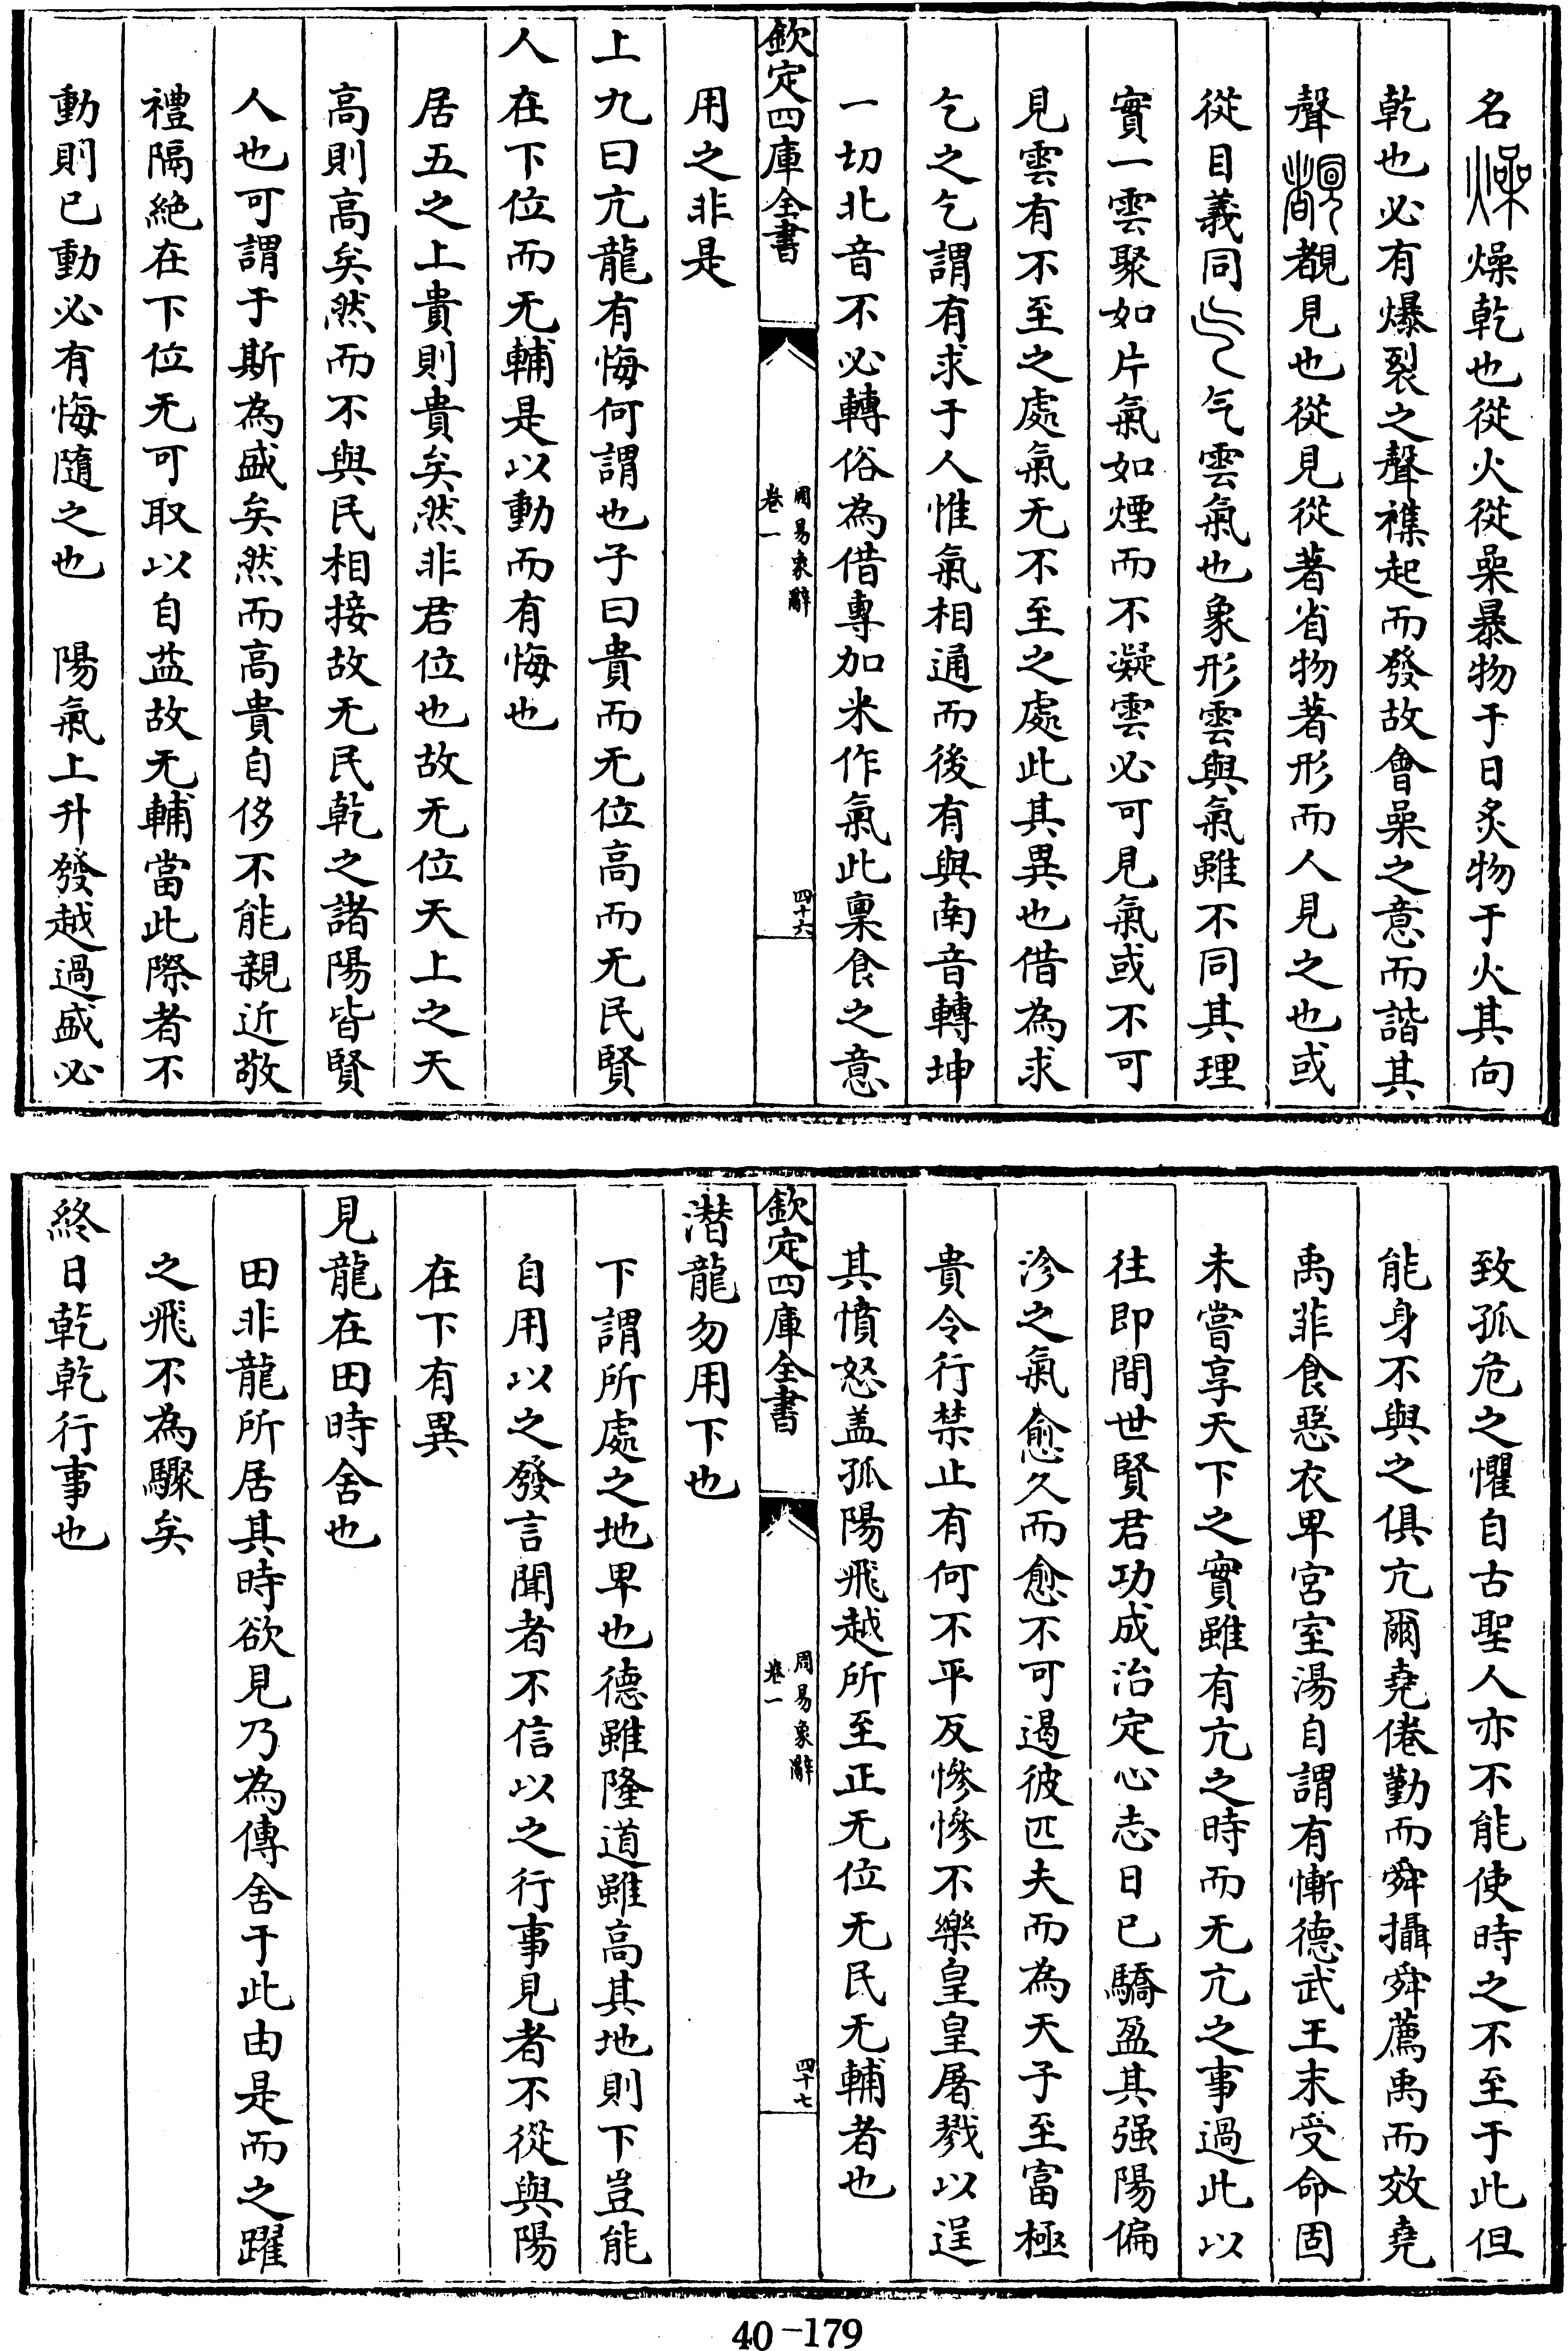 名燥燥乾也從火從喿暴物于日炙物于火其向
乾也必有爆裂之聲襍起而發故會喿之意而諧其
聲覩見也從見從著省物著形而人見之也或
從目義同气雲氣也象形雲與氣雖不同其理
實一雲聚如片氣如煙而不凝雲必可見氣或不可
見雲有不至之處氣无不至之處此其異也借為求
乞之乞謂有求于人惟氣相通而後有與南音轉坤
一切北音不必轉俗為借專加米作氣此稟食之意
欽定四庫全書
周易象辭
卷一
四十六
用之非是
上九曰亢龍有悔何謂也子曰貴而无位高而无民賢
人在下位而无輔是以動而有悔也
居五之上貴則貴矣然非君位也故无位天上之天
高則高矣然而不與民相接故无民乾之諸陽皆賢
人也可謂于斯為盛矣然而高貴自侈不能親近敬
禮隔絶在下位无可取以自益故无輔當此際者不
動則已動必有悔隨之也　陽氣上升發越過盛必
致孤危之懼自古聖人亦不能使時之不至于此但
能身不與之俱亢爾堯倦勤而舜攝舜薦禹而效堯
禹非食惡衣卑宮室湯自謂有慚德武王末受命固
未嘗享天下之實雖有亢之時而无亢之事過此以
往即間世賢君功成治定心志日已驕盈其强陽偏
沴之氣愈久而愈不可遏彼匹夫而為天子至富極
貴令行禁止有何不平反慘慘不樂皇皇屠戮以逞
其憤怒盖孤陽飛越所至正无位无民无輔者也
欽定四庫全書
周易象辭
卷一
四十七
潛龍勿用下也
下謂所處之地卑也德雖隆道雖高其地則下豈能
自用以之發言聞者不信以之行事見者不從與陽
在下有異
見龍在田時舍也
田非龍所居其時欲見乃為傳舍于此由是而之躍
之飛不為驟矣
終日乾乾行事也
40-179